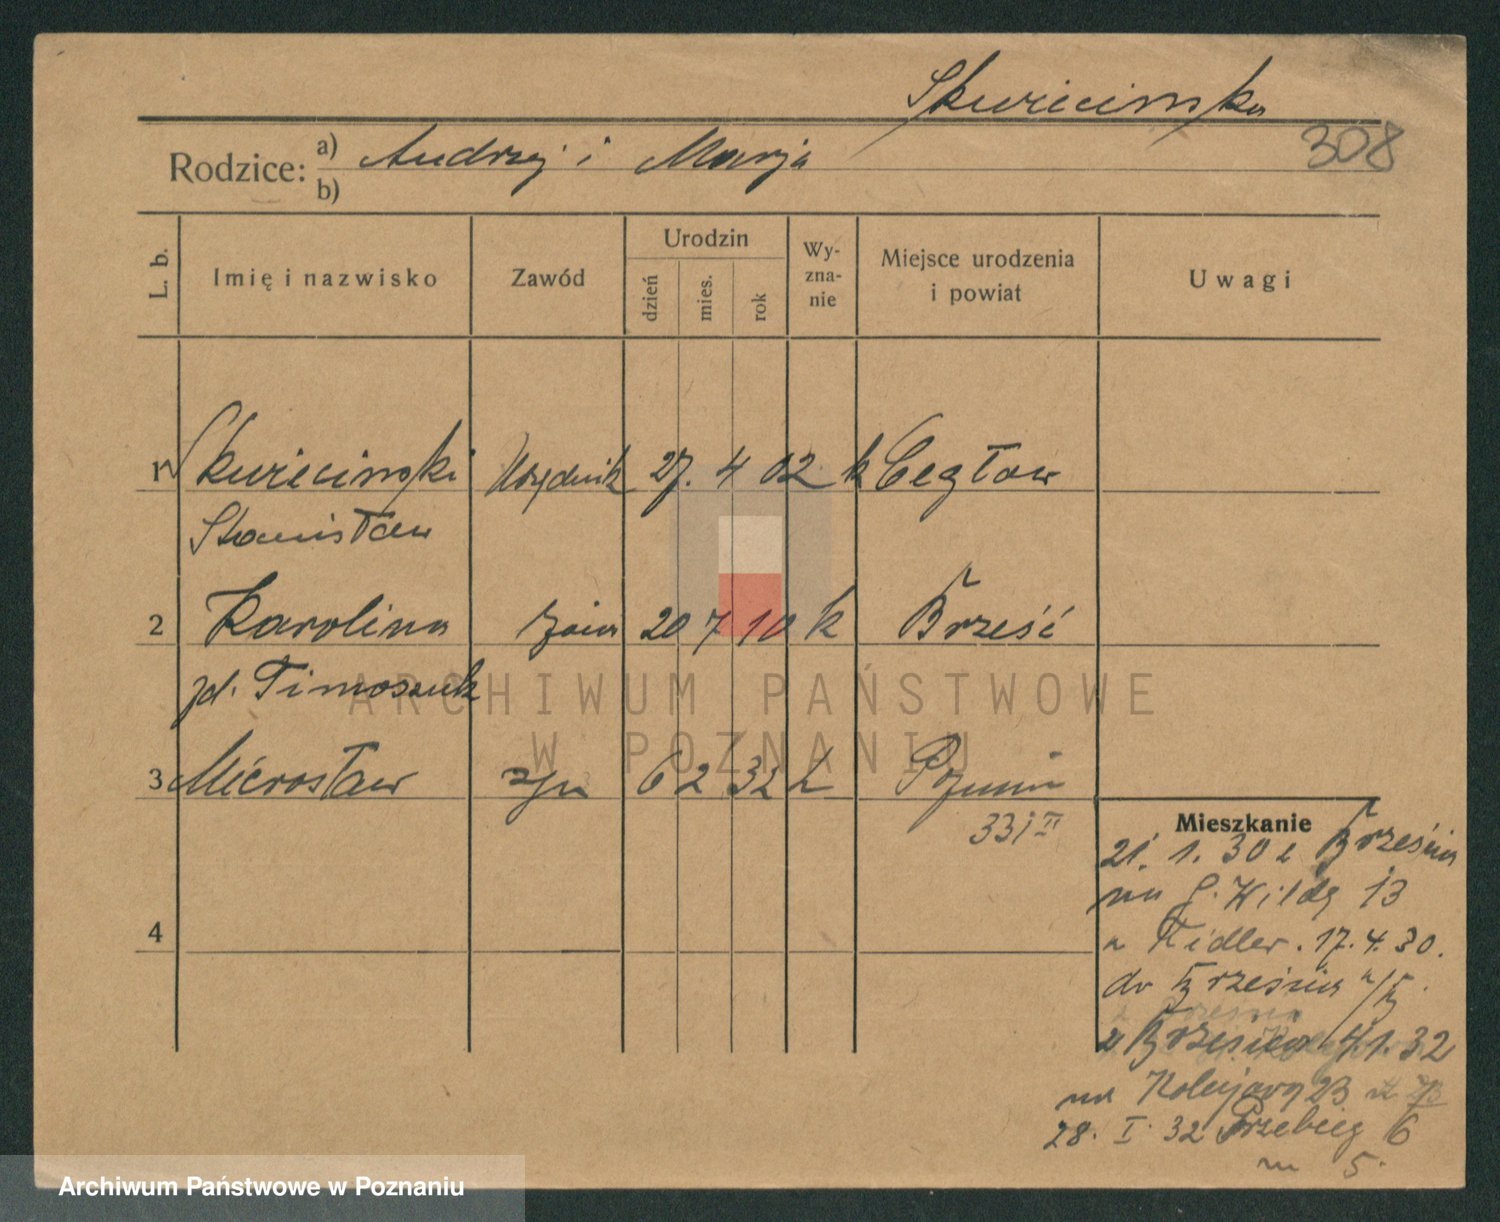 Skwiecinska
308
Rodzice: a) Andrzej i Marja
b)
L. b.
Imię i nazwisko
Zawód
Urodzin
dzień
mies.
rok
Wy-
zna-
nie
Miejsce urodzenia
i powiat
Uwagi
1 Skwiecinski Urzędnik 27. 4 02 k Cegłow
Stanisław
2 Karolina żona 20 7 10 k Brześć
zd. Timoszuk
ARCHIWUM PAŃSTWOWE
W POZNANIU
3 Mirosław syn 6 2 32 k Poznań
331 II
4
Mieszkanie
21. 1. 30 z Brześcia
na G. Wildę 13
u Fidler. 17. 4. 30.
do Brześcia n/B.
z Brześcia 4/1. 32
na Kolejową 23
28. I. 32 Przebieg 6
m 5.
Archiwum Państwowe w Poznaniu